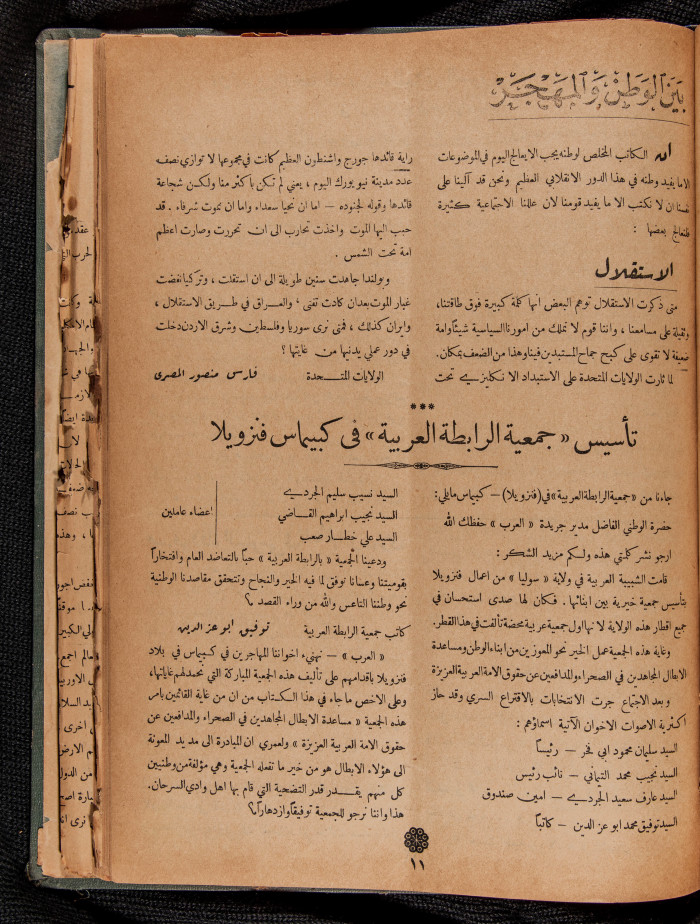 بَيْنَ الوَطَن وَالمَهْجَر
ان الكاتب المخلص لوطنه يجب الا يعالج اليوم في الموضوعات
الا ما يفيد وطنه في هذا الدور الانقلابي العظيم ونحن قد آلينا على
نفسنا ان لا نكتب الا ما يفيد قومنا لان عللنا الاجتماعية كثيرة
فلنعالج بعضها :
الاستقلال
متى ذكرت الاستقلال توهم البعض انها كلمة كبيرة فوق طاقتنا،
وثقيلة على مسامعنا ، واننا قوم لا نملك من امورنا السياسية شيئاً وامة
ضعيفة لا تقوى على كبح جماح المستبدين فينا وهذا من الضعف بمكان.
لما ثارت الولايات المتحدة على الاستبداد الانكليزي تحت
راية قائدها جورج واشنطون العظيم كانت في مجموعها لا توازي نصف
عدد مدينة نيو يورك اليوم ، يعني لم تكن باكثر منا ولكن شجاعة
قائدها وقوله لجنوده — اما ان نحيا سعداء واما ان نموت شرفاء . قد
حبب اليها الموت واخذت تحارب الى ان تحررت وصارت اعظم
امة تحت الشمس .
وبولندا جاهدت سنين طويلة الى ان استقلت ، وتركيا نفضت
غبار الموت بعد ان كادت تفنى ، والعراق في طريق الاستقلال ،
وايران كذلك ، فمتى نرى سوريا وفلسطين وشرق الاردن دخلت
في دور عملي يدنيها من غايتها ؟
الولايات المتحدة فارس منصور المصري
***
تأسيس « جمعية الرابطة العربية » في كبيماس فنزويلا
جاءنا من « جمعية الرابطة العربية » في ( فنزويلا ) — كبيماس مايلي:
حضرة الوطني الفاضل مدير جريدة « العرب » حفظك الله
ارجو نشر كلمتي هذه ولكم مزيد الشكر :
قامت الشبيبة العربية في ولاية « سوليا » من اعمال فنزويلا
بتأسيس جمعية خيرية بين ابنائها . فكان لها صدى استحسان في
جميع اقطار هذه الولاية لانها اول جمعية عربية محضة تألفت في هذا القطر.
وغاية هذه الجمعية عمل الخير نحو المعوزين من ابناء الوطن ومساعدة
الابطال المجاهدين في الصحراء والمدافعين عن حقوق الامة العربية العزيزة
وبعد الاجتماع جرت الانتخابات بالاقتراع السري وقد حاز
اكثرية الاصوات الاخوان الآتية اسماؤهم :
السيد سليمان محمود ابي فخر — رئيساً
السيد نجيب محمد التيماني — نائب رئيس
السيد عارف سعيد الجردي — امين صندوق
السيد توفيق محمد ابو عز الدين — كاتباً
السيد نسيب سليم الجردي
السيد نجيب ابراهيم القاضي
السيد علي خطار صعب
اعضاء عاملين
ودعينا الجمعية « بالرابطة العربية » حباً بالتعاضد العام وافتخاراً
بقوميتنا وعسانا نوفق لما فيه الخير والنجاح وتتحقق مقاصدنا الوطنية
نحو وطننا التاعس والله من وراء القصد ؟
كاتب جمعية الرابطة العربية توفيق ابو عز الدين
« العرب » — نهنيء اخواننا المهاجرين في كبيماس في بلاد
فنزويلا باقدامهم على تأليف هذه الجمعية المباركة التي نحمد لهم غاياتها،
وعلى الاخص ما جاء في هذا الكتاب من ان من غاية القائمين بامر
هذه الجمعية « مساعدة الابطال المجاهدين في الصحراء والمدافعين عن
حقوق الامة العربية العزيزة » ولعمري ان المبادرة الى مد يد المعونة
الى هؤلاء الابطال هو من خير ما تفعله الجمعية وهي مؤلفة من وطنيين
كل منهم يقدر قدر التضحية التي قام بها اهل وادي السرحان.
هذا واننا نرجو للجمعية توفيقاً وازدهاراً؟
١١